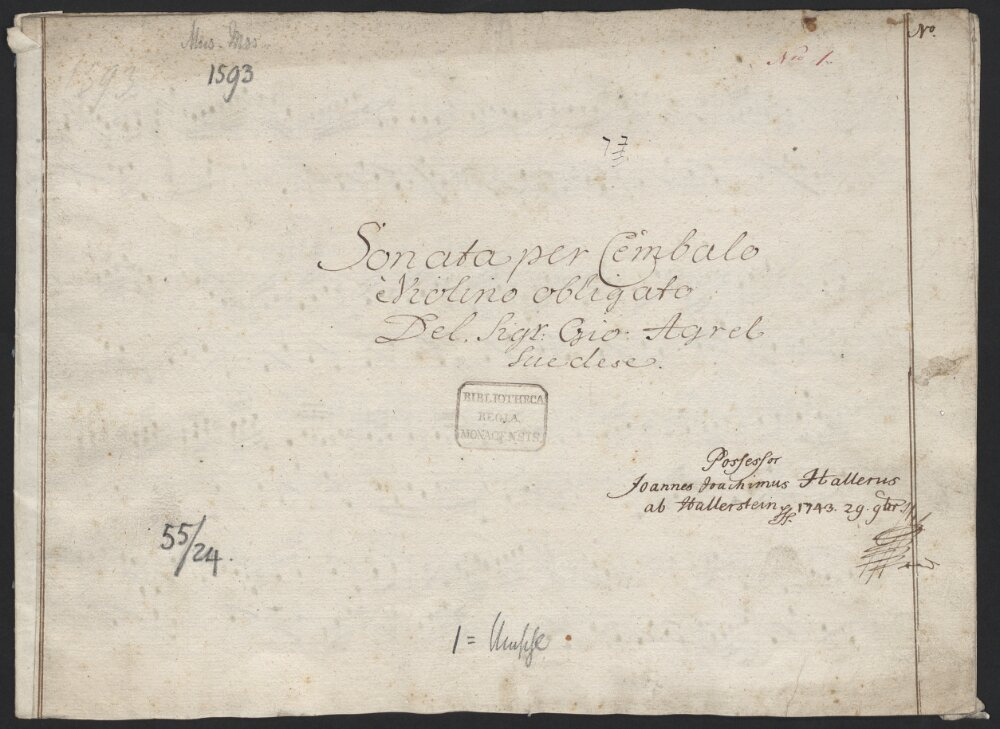 Mus. Mss.
1593
1593
Nro 1.
No.
Sonata per Cembalo
è Violino obligato
Del. Sigr. Gio. Agrel
Suedese.
BIBLIOTHECA
REGIA
MONACENSIS
Possessor
Joannes Joachimus Hallerus
ab Hallerstein 1743. 29. 9br
55/24.
1 = Umschl